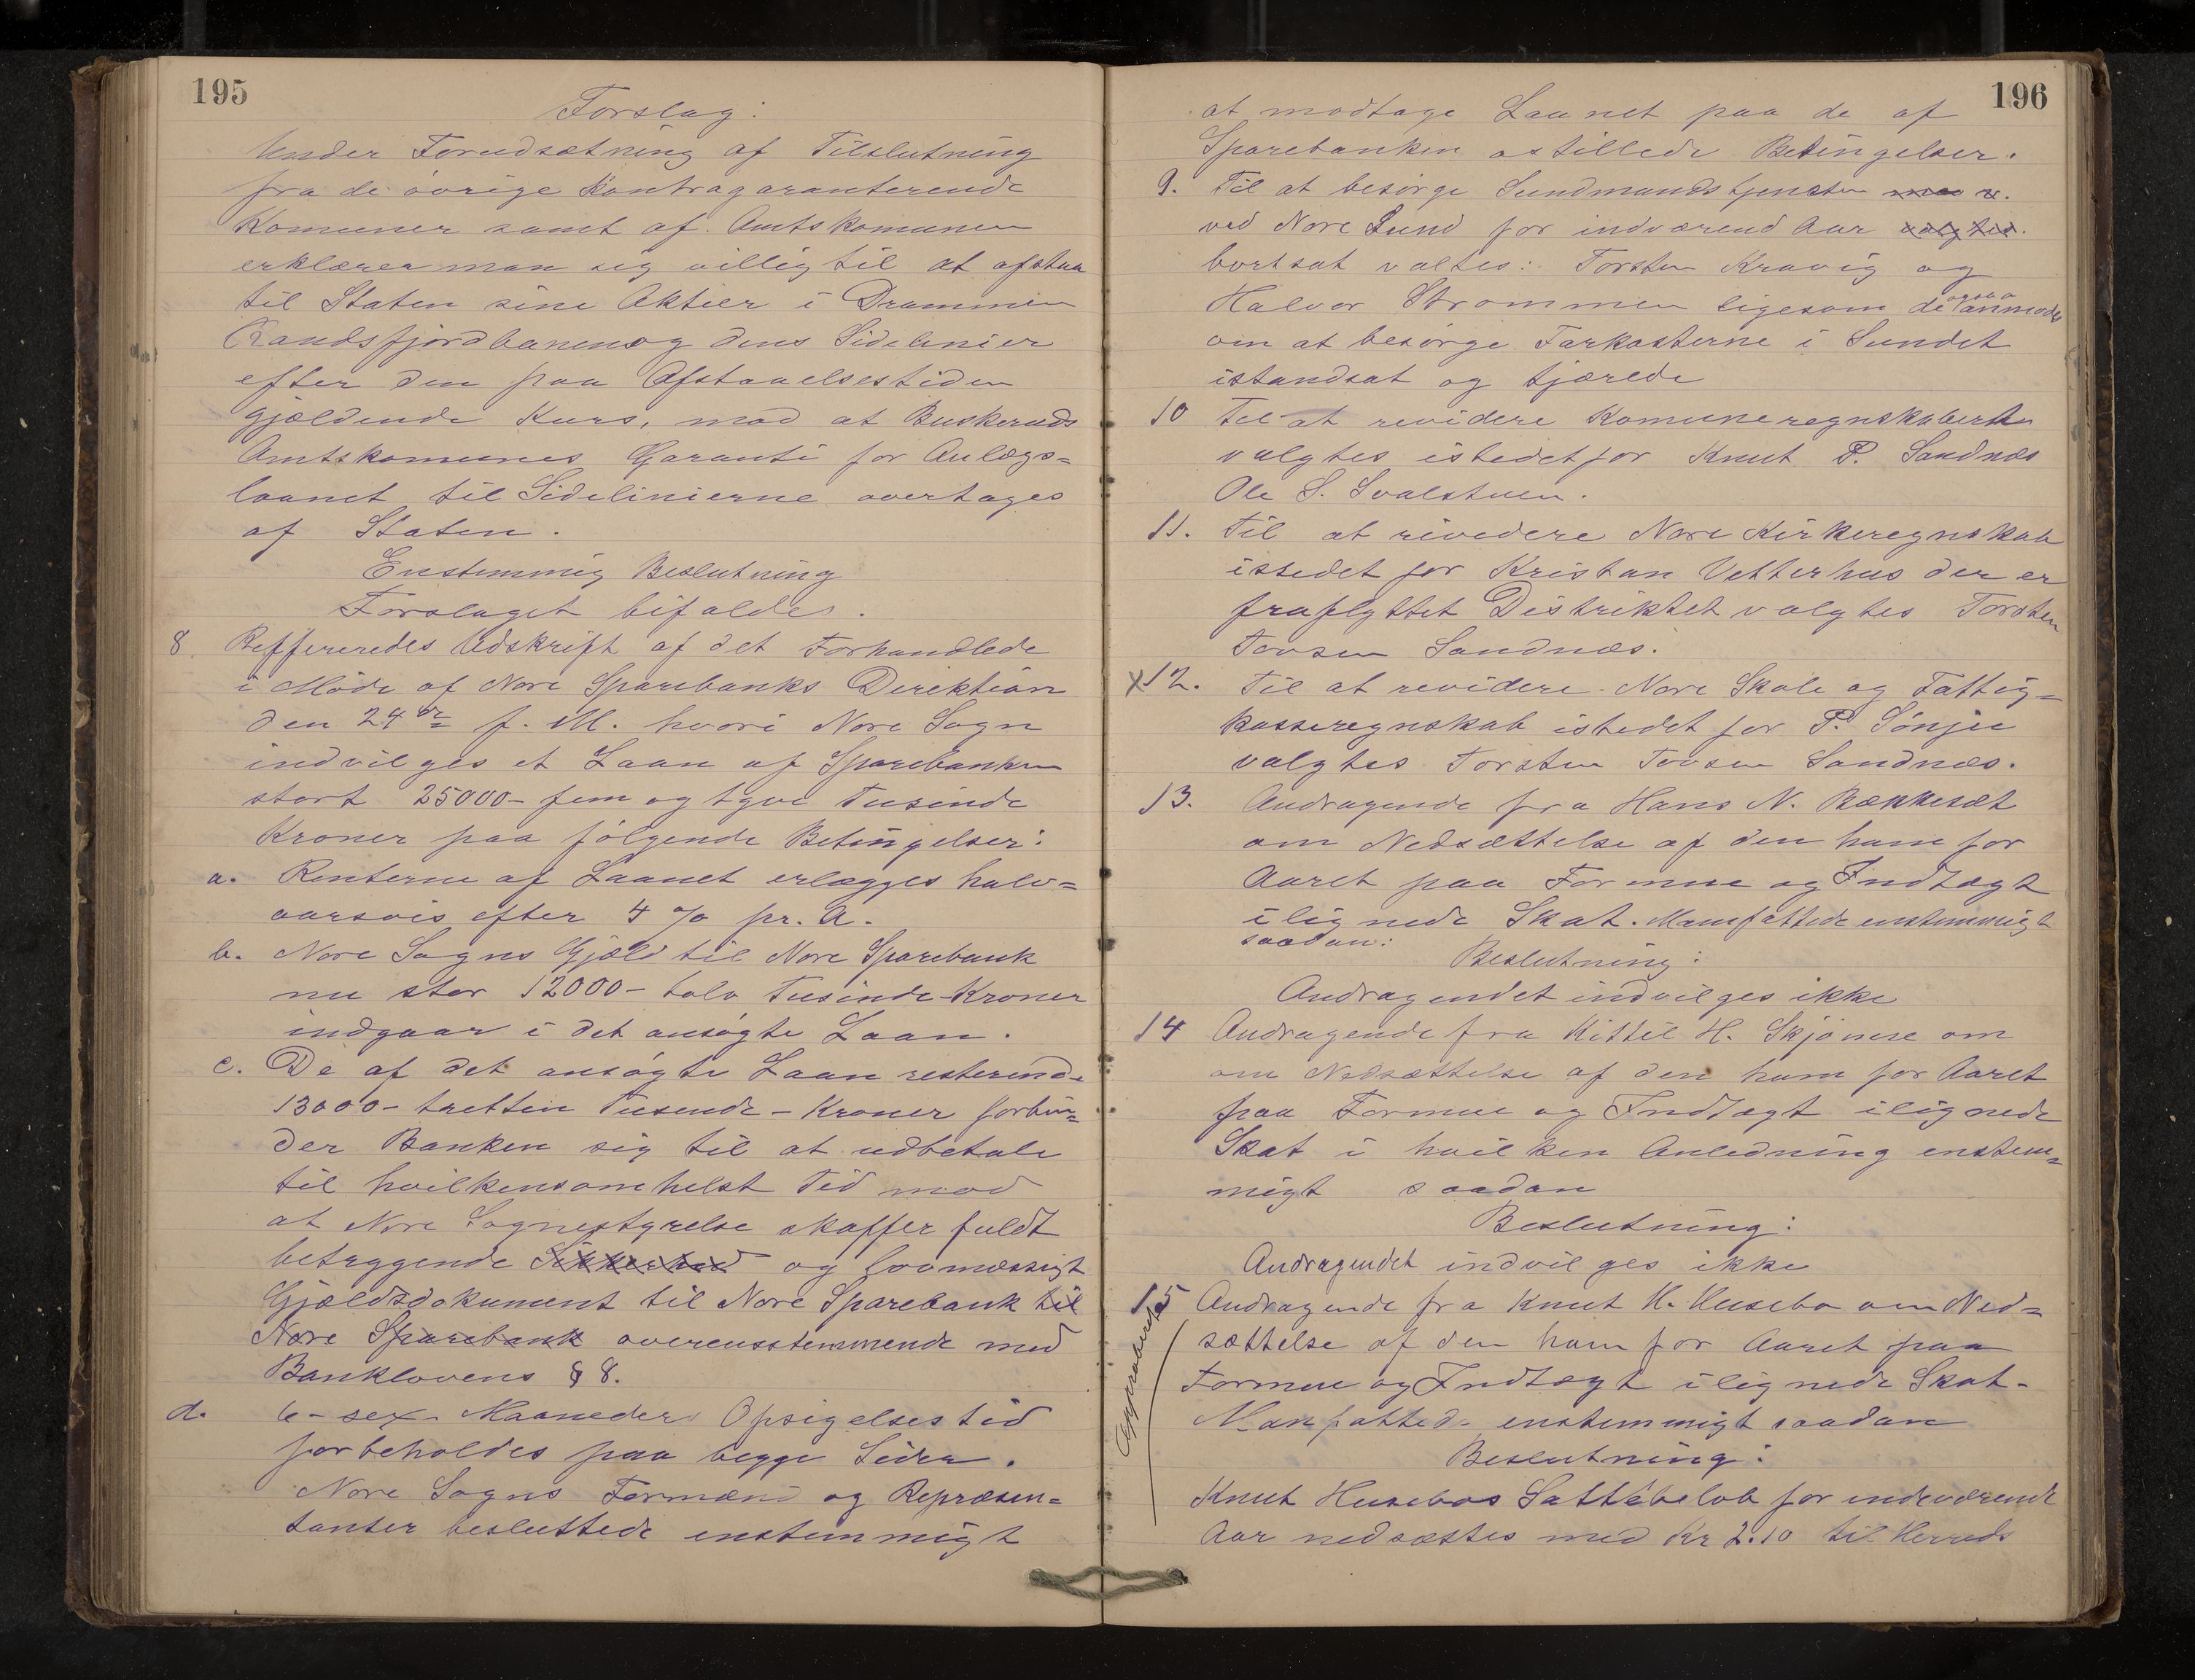 195
Forslag:
Under Forudsætning af Tilslutning
fra de øvrige Kontragaranterende
Komuner samt af Amtskomunen
erklærer man sig villig til at afstaa
til Staten sine Aktier i Drammen
Randsfjordbanen og dens Sidelinier
efter den paa Afstaaelsestiden
gjældende Kurs, mod at Buskeruds
Amtskomunes Garanti for Anlægs=
laanet til Sidelinierne overtages
af Staten.
Enstemmig Beslutning
Forslaget bifaldes.
8. Reffereredes Udskrift af det Forhandlede
i Møde af Nore Sparebanks Direktion
den 24de f. M. hvori Nore Sogn
indvilges et Laan af Sparebanken
stort 25000- fem og tyve Tusinde
Kroner paa følgende Betingelser:
a. Renterne af Laanet erlægges halv=
aarsvis efter 4 % pr. A.
b. Nore Sogns Gjæld til Nore Sparebank
nu stor 12000- tolv Tusinde Kroner
indgaar i det ansøgte Laan.
c. De af det ansøgte Laan resterende
13000- tretten Tusende - Kroner forbin=
der Banken sig til at udbetale
til hvilkensomhelst Tid mod
at Nore Sognestyrelse skaffer fuldt
betryggende Sikkerhed og lovmæssigt
Gjældsdokument til Nore Sparebank til
Nore Sparebank overensstemmende med
Banklovens § 8.
d. 6- sex- Maaneders Opsigelsestid
forbeholdes paa begge Sider.
Nore Sogns Formænd og Repræsen=
tanter besluttede enstemmigt
196
at modtage Laanet paa de af
Sparebanken opstillede Betingelser.
9. Til at besørge Sundmandstjensten
ved Nore Sund for indværend Aar valgtes
bortsat valtes: Torsten Kravig og
Halvor Strømmen ligesom de ogsaa anmodes
om at besørge Farkosterne i Sundet
istandsat og tjærede
10 Til at revidere Komuneregnskaberne
valgtes istedetfor Knut P. Sandnæs
Ole S. Svalstuen.
11. Til at rivedere Nore Kirkeregnskab
istedet for Kristan Vetterhus der er
fraflyttet Distriktet valgtes Torsten
Tovsen Sandnæs.
x12. Til at revidere Nore Skole og Fattig=
kasseregnskab istedet for P. Sønju
valgtes Torsten Tovsen Sandnæs.
13. Andragende fra Hans N. Bækkesæt
om Nedsættelse af den ham for
Aaret paa Formue og Indtægt
ilignede Skat. Man fattede enstemmigt
saadan:
Beslutning:
Andragendet indvilges ikke
14 Andragende fra Kittil H. Skjønne om
om Nedsættelse af den ham for Aaret
paa Formue og Indtægt ilignede
Skat i hvilken Anledning enstem=
migt saadan
Beslutning:
Andragendet indvilges ikke
15 Andragende fra Knut K. Husebø om Ned=
sættelse af den ham for Aaret paa
Formue og Indtægt ilignede Skat.
Man fattede enstemmigt saadan
Beslutning:
Knut Husebøs Skattebeløb for indeværende
Aar nedsættes med Kr 2.10 til Herreds
Approberet